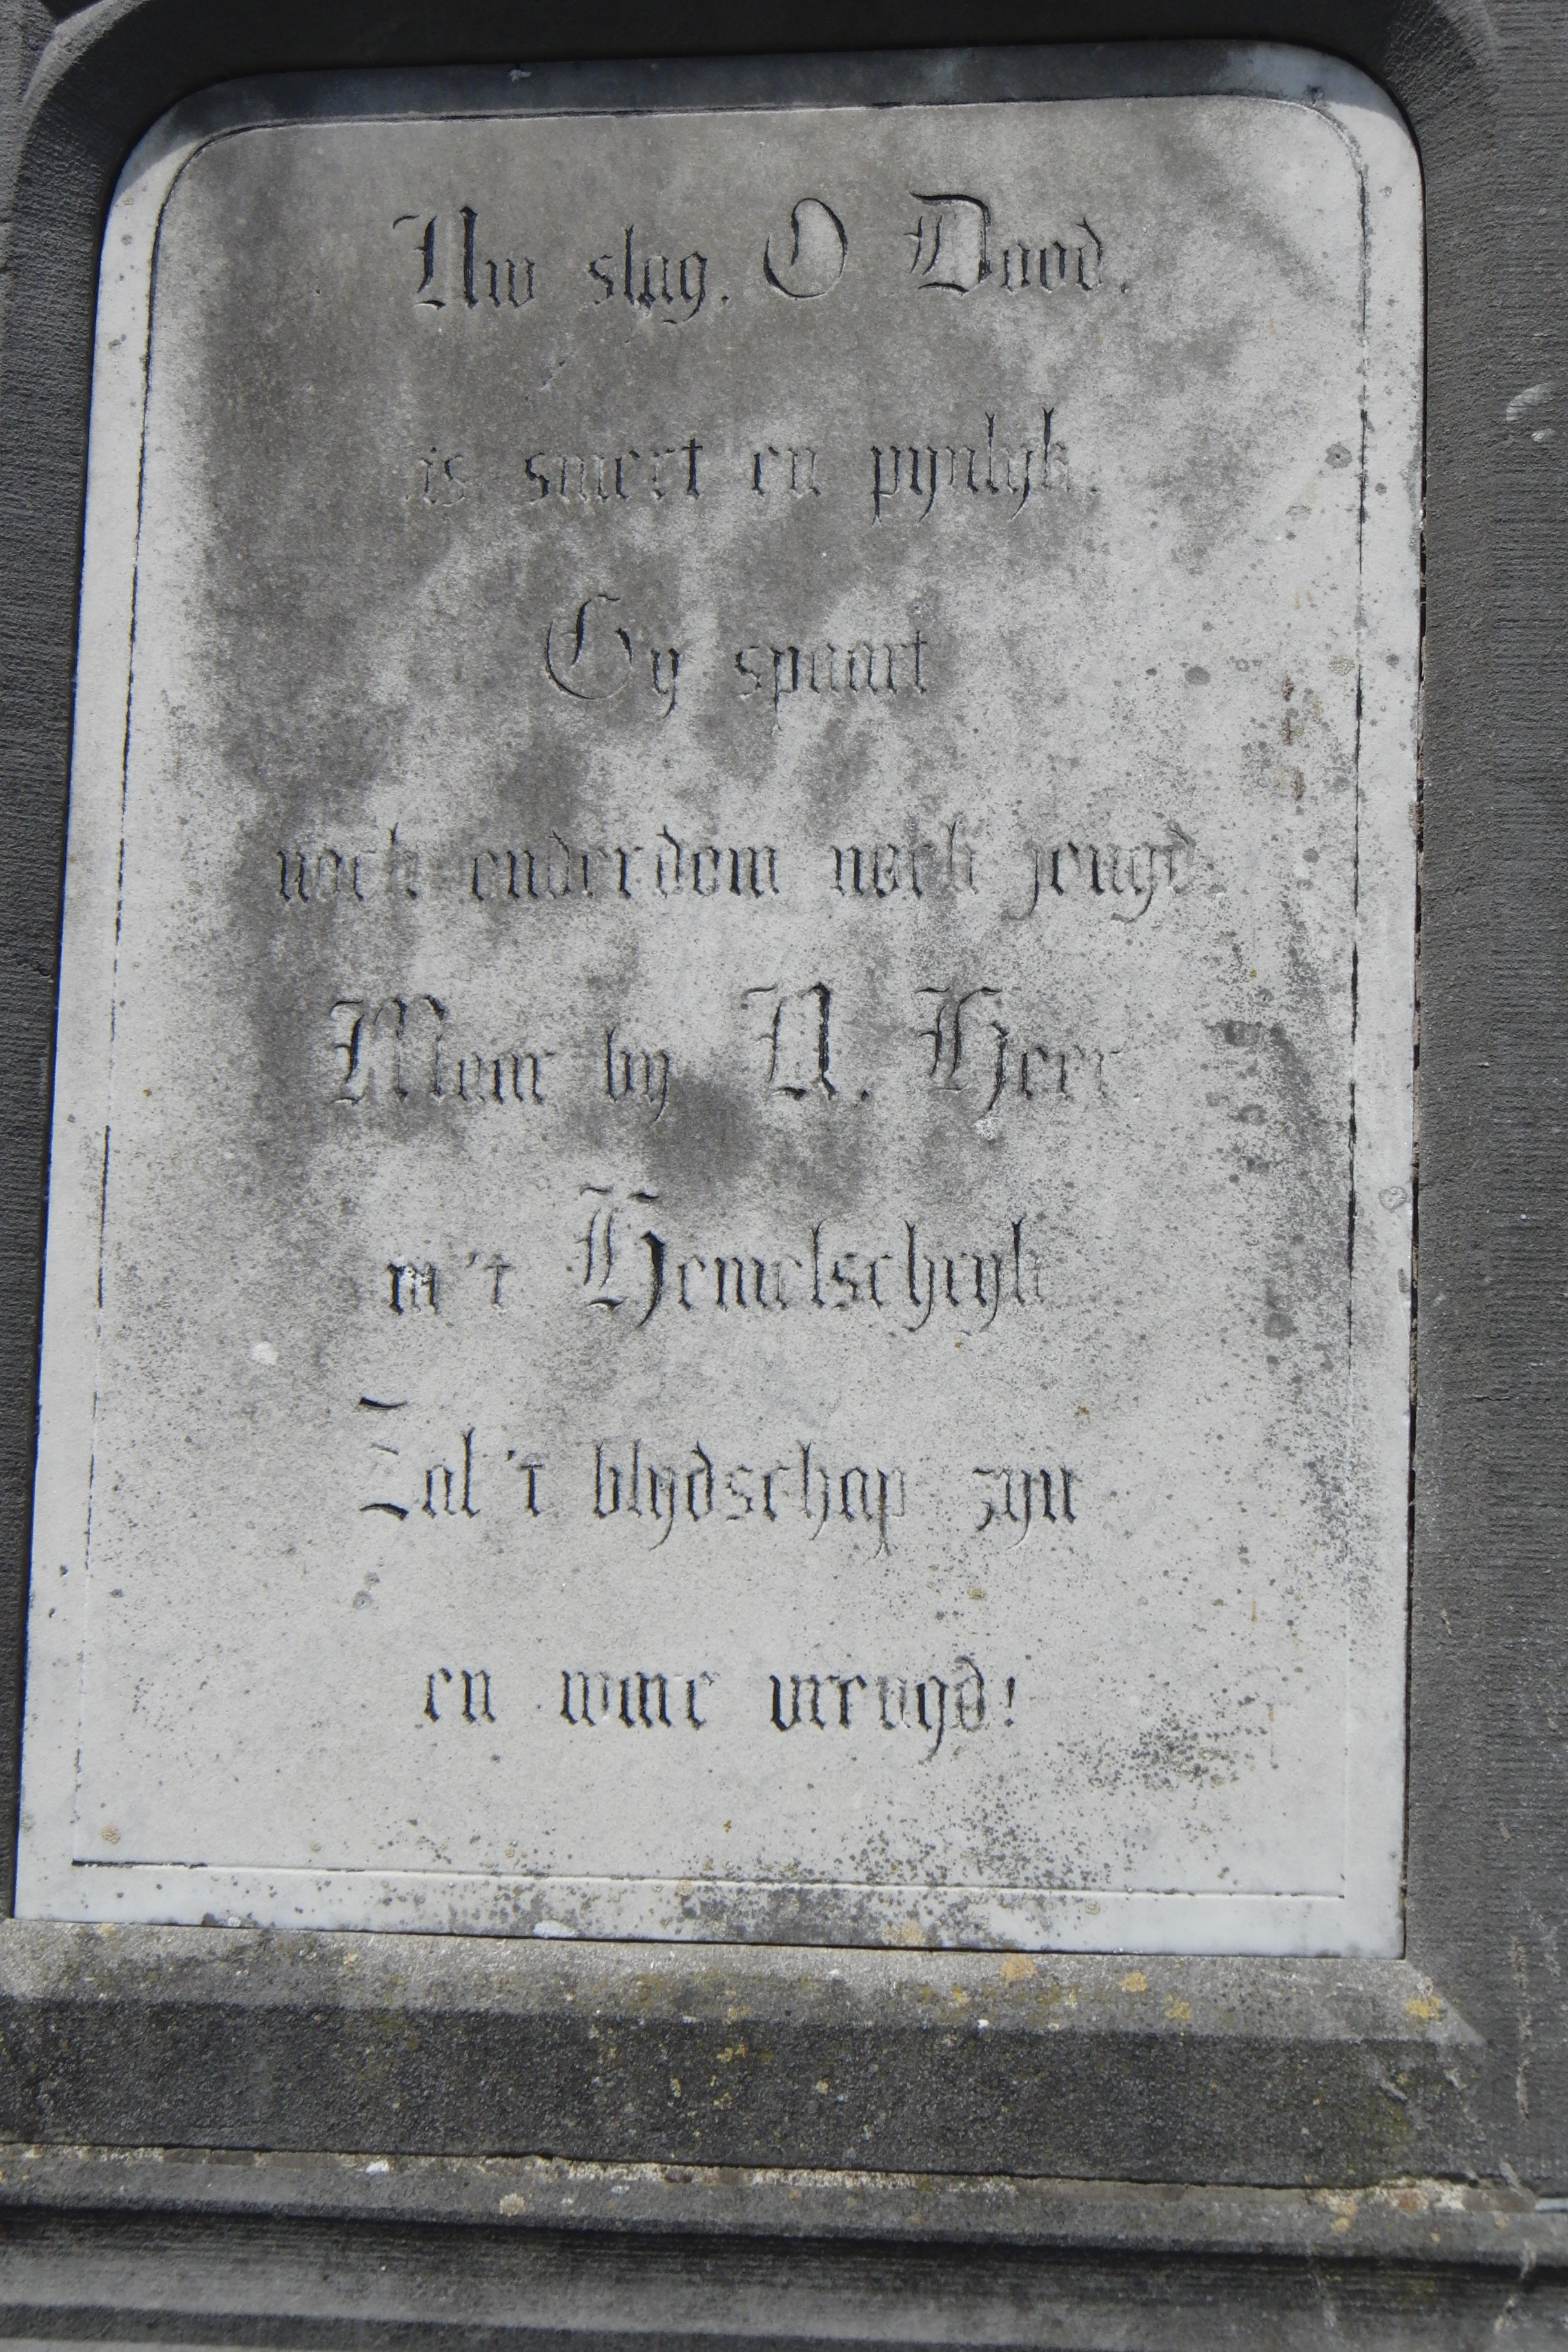 Uw slag, O Dood,
is smert en pynlyk,
Gy spaart
noch ouderdom noch jeugd
Maar by U, Heer
in 't Hemelschryk
Zal 't blydschap zyn
en ware vreugd!